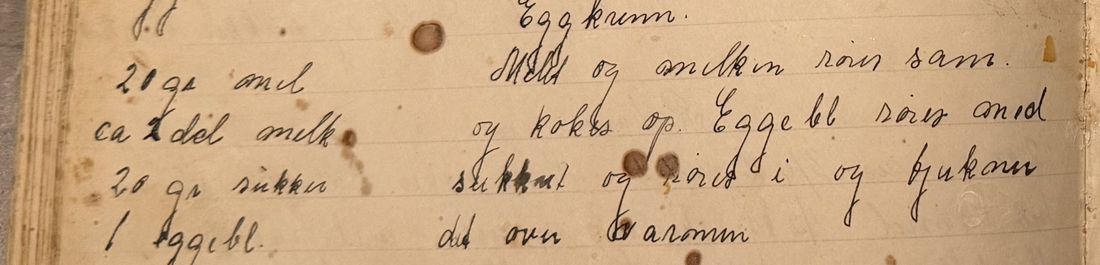 Eggkrem.
20 gr mel
ca 2 del melk
20 gr sukker
1 eggebl.
Melet og melken röres sam.
og kokes op. Eggebl röres med
sukkret og röres i og tjukner
det over varmen